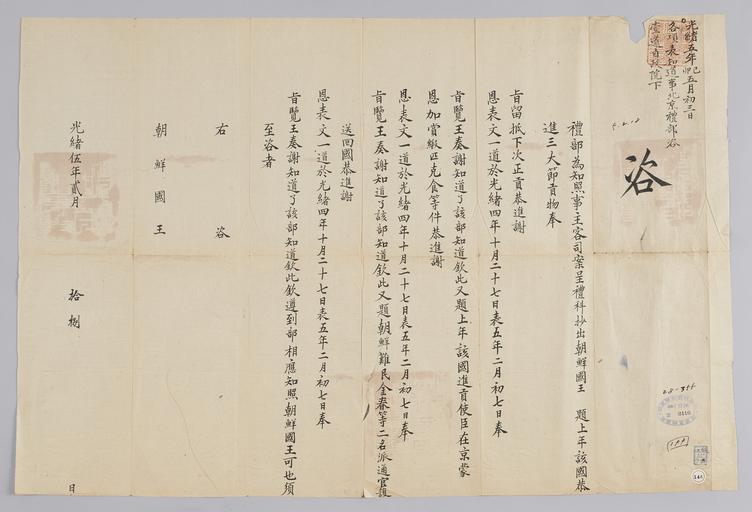 光緒五年己卯五月初三日
各項表知道事北京禮部咨
壹道自政院下
咨
禮部為知照事主客司案呈禮科抄出朝鮮國王 題上年該國恭
進三大節貢物奉
旨留抵下次正貢恭進謝
恩表文一道於光緒四年十月二十七日表五年二月初七日奉
旨覽王奏謝知道了該部知道欽此又題上年該國進貢使臣在京蒙
恩加賞緞疋克食等件恭進謝
恩表文一道於光緒四年十月二十七日表五年二月初七日奉
旨覽王奏謝知道了該部知道欽此又題朝鮮難民金春等二名派通官護
送回國恭進謝
恩表文一道於光緒四年十月二十七日表五年二月初七日奉
旨覽王奏謝知道了該部知道欽此欽遵到部相應知照朝鮮國王可也須
至咨者
右 咨
朝鮮國王
光緒伍年貳月 拾捌 日
28-356
144